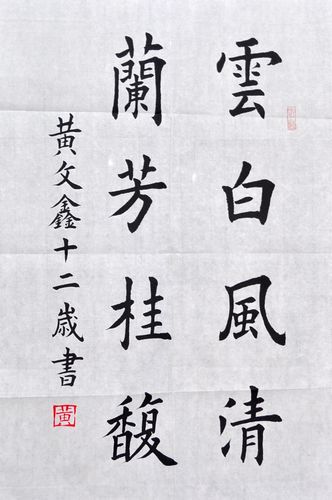 雲白風清
蘭芳桂馥
黃文鑫十二歲書
黃